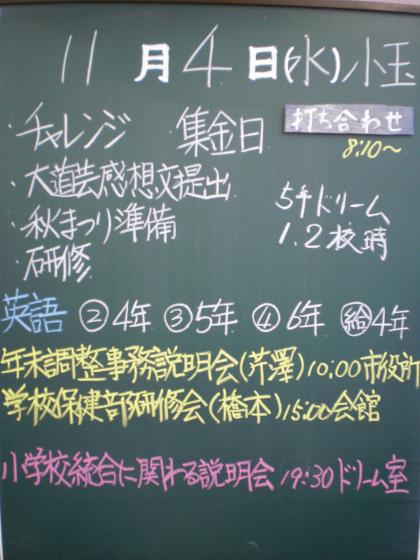 11月4日(水)小玉
・チャレンジ 集金日 打ち合わせ
8:10〜
・大道芸感想文提出
・秋まつり準備 5年ドリーム
・研修 1.2校時
英語 ②4年 ③5年 ④6年 ㊗4年
年末調整事務説明会(芹澤)10:00市役所
学校保健部研修会(橋本)15:00会館
小学校統合に関わる説明会 19:30ドリーム室